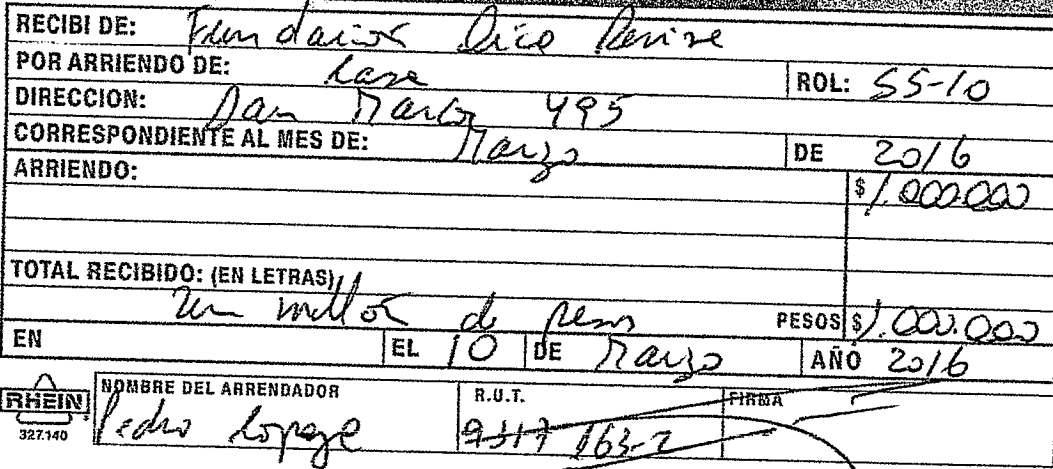 RECIBI DE: Fundacion
POR ARRIENDO DE: Casa ROL: 55-10
DIRECCION: San Martin 495
CORRESPONDIENTE AL MES DE: Marzo DE 2016
ARRIENDO: $ 1.000.000
TOTAL RECIBIDO: (EN LETRAS)
Un millon de pesos PESOS $ 1.000.000
EN EL 10 DE Marzo AÑO 2016
RHEIN NOMBRE DEL ARRENDADOR R.U.T. FIRMA
327.140 Pedro 163-2